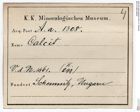 4
K. K. Mineralogisches Museum.
Acq. Post A. a. 1808.
Name Calcit
V. d. N. 1661.
Fundort Schemnitz, Ungarn